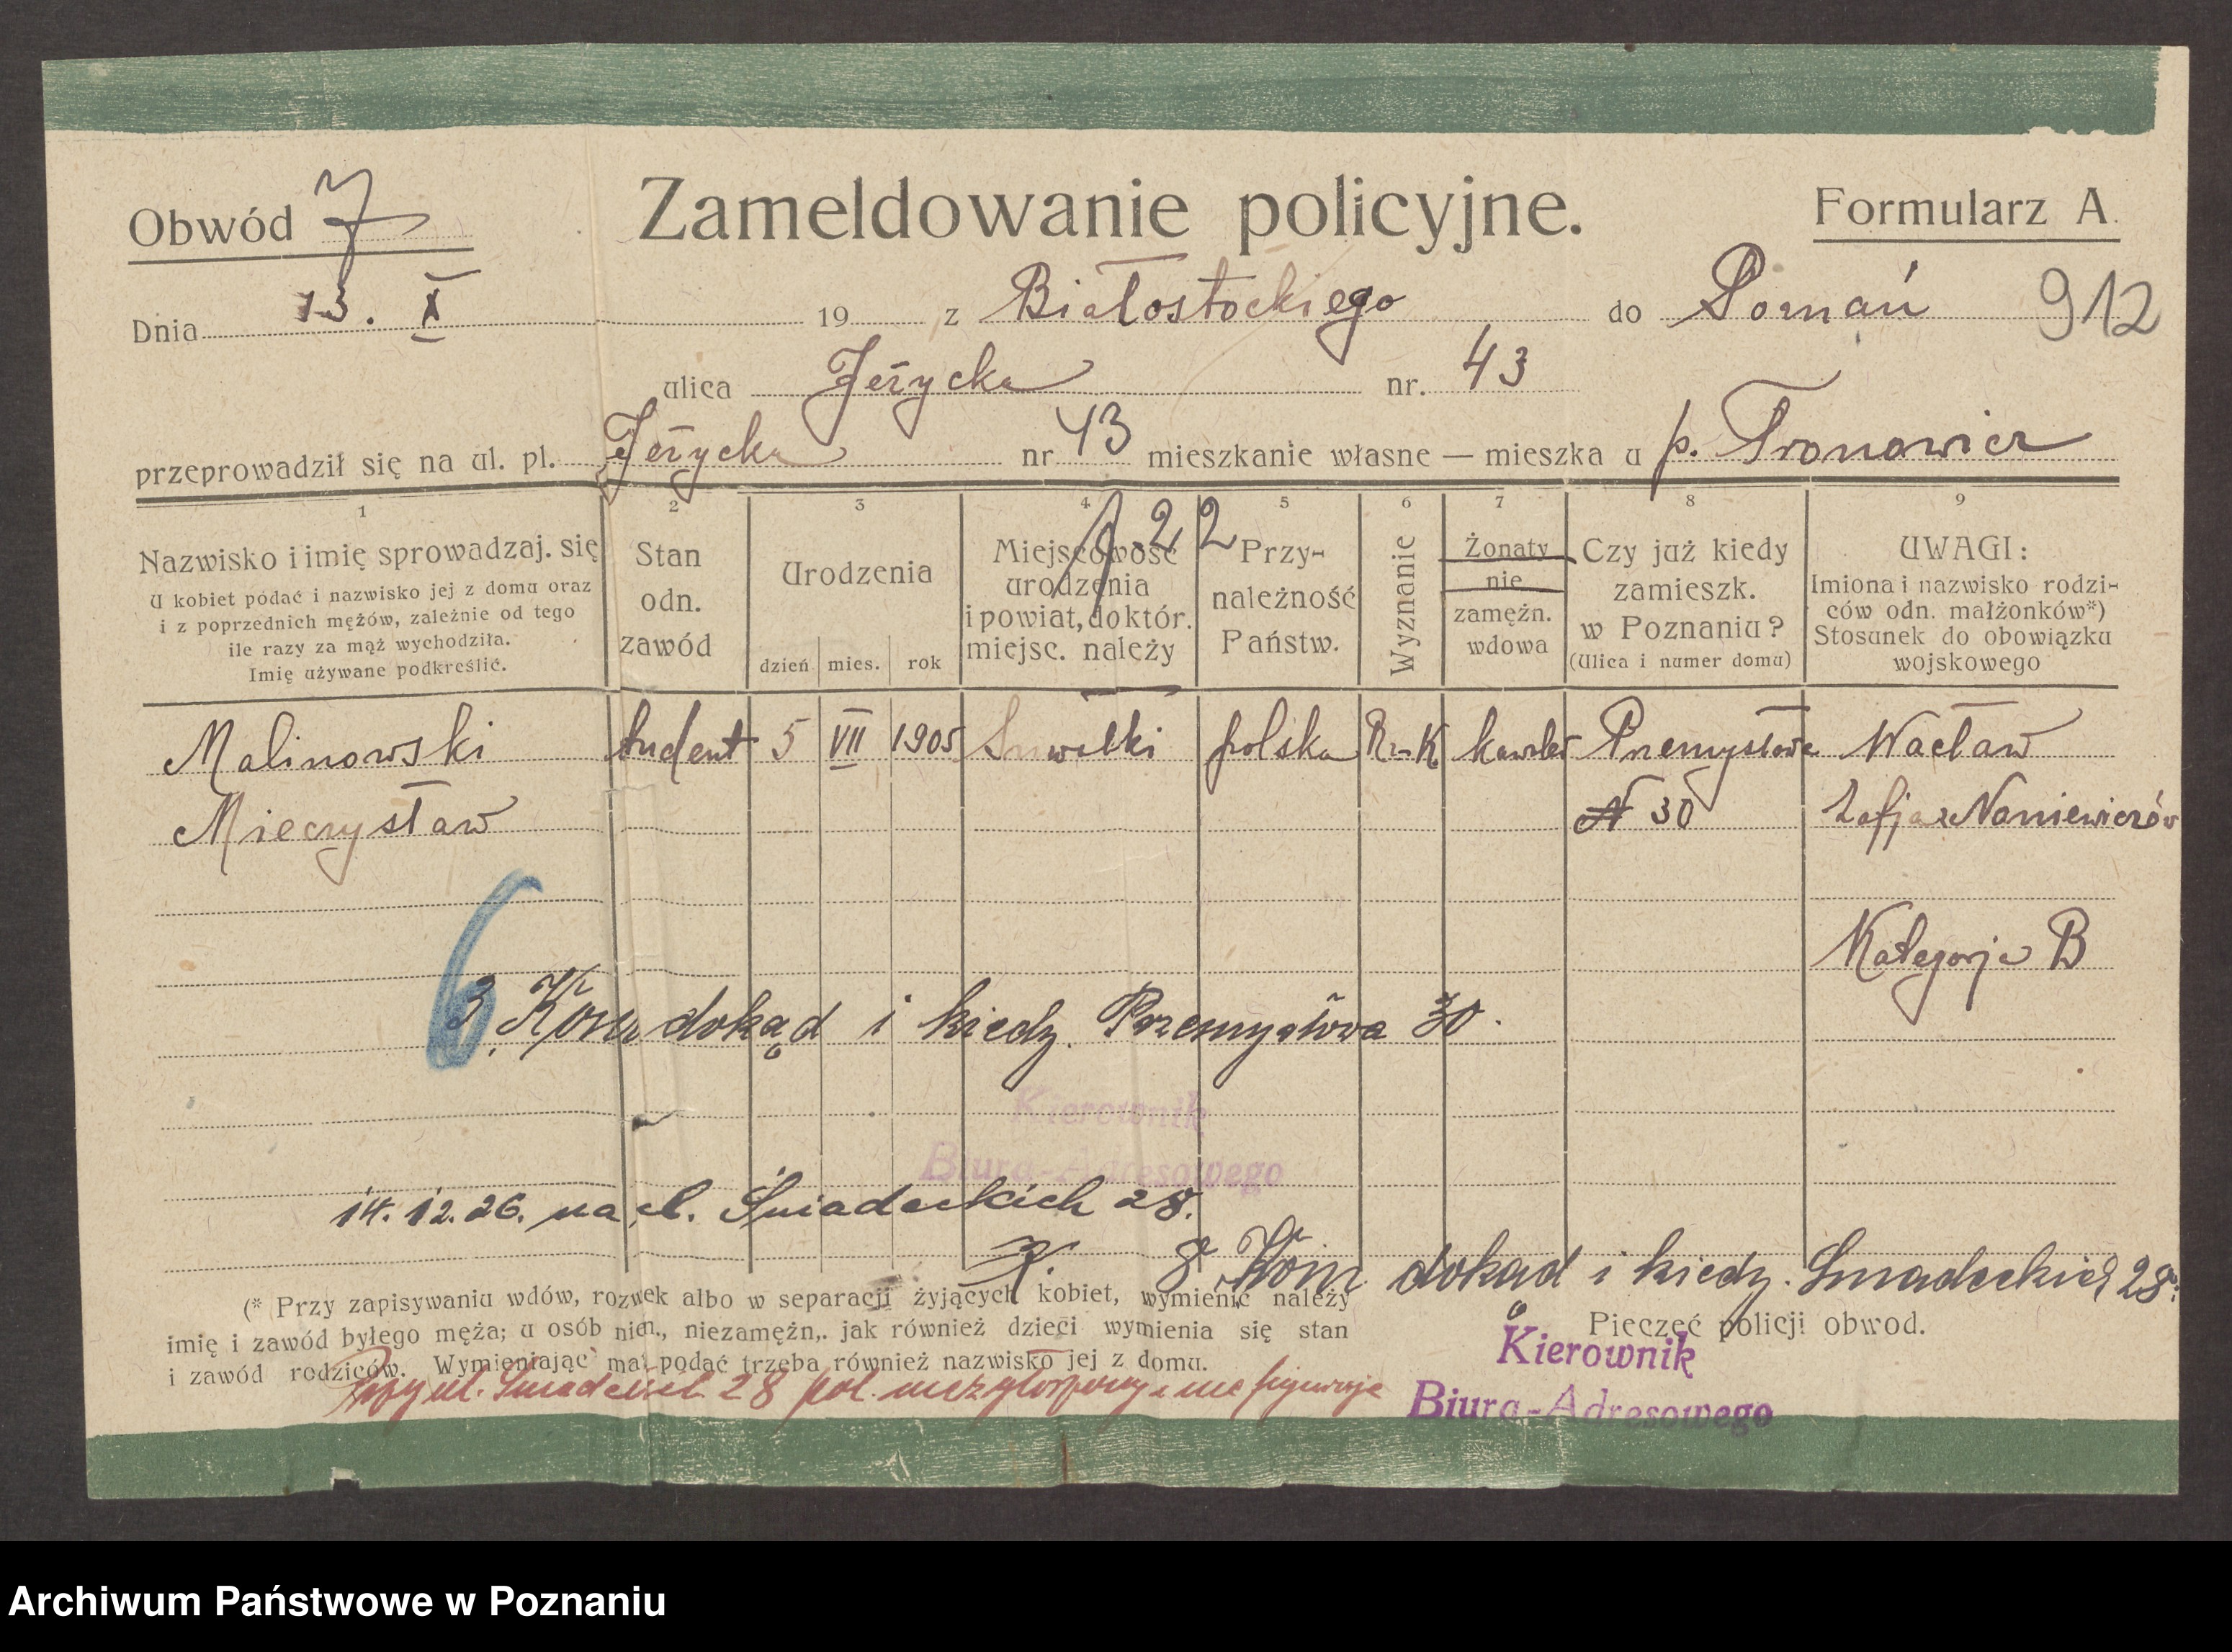 Obwód 7 Zameldowanie policyjne. Formularz A.
Dnia 13. X 19 z Białostockiego do Poznań 912
ulica Jeżycka nr. 43
przeprowadził się na ul. pl. Jeżycka nr 43 mieszkanie własne — mieszka u p.
1 2 3 4 5 6 7 8 9
22
Nazwisko i imię sprowadzaj. się
U kobiet pódać i nazwisko jej z domu oraz
i z poprzednich mężów, zależnie od tego
ile razy za mąż wychodziła.
Imię używane podkreślić.
Stan
odn.
zawód
Urodzenia
dzień mies. rok
Miejscowość
urodzenia
i powiat, do któr.
miejsc. należy
Przy-
należność
Państw.
Wyznanie
Żonaty
nie
zamężn.
wdowa
Czy już kiedy
zamieszk.
w Poznaniu?
(Ulica i numer domu)
UWAGI:
Imiona i nazwisko rodzi-
ców odn. małżonków*)
Stosunek do obowiązku
wojskowego
Malinowski student 5 VII 1905 Suwałki polska Rz-K kawaler Przemysłowa Wacław
Mieczysław N 30 Zofja z Naniewiczów
Kategorja B
6
3. Kom dokąd i kiedy. Przemysłowa 30.
Kierownik
Biura-Adresowego
14. 12. 26. na ul. Śniadeckich 28.
8 Kom dokąd i kiedy. Śniadeckich 28.
(* Przy zapisywaniu wdów, rozwek albo w separacji żyjących kobiet, wymienić należy
imię i zawód byłego męża; u osób nien., niezamężn,. jak również dzieci wymienia się stan
i zawód rodziców. Wymieniając mat. podać trzeba również nazwisko jej z domu.
Pieczęć policji obwod.
Kierownik
Biura-Adresowego
Przy ul. Śniadeckich 28 pol. niezgłoszony i nie figuruje
Archiwum Państwowe w Poznaniu